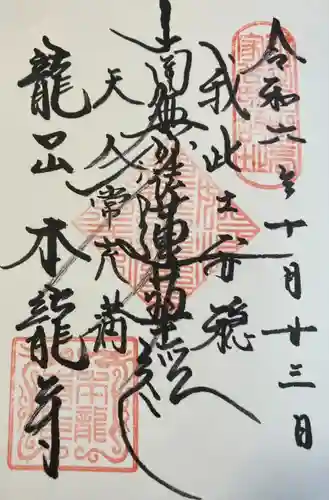 令和六年十一月十三日
我此土安穏
南無妙法蓮華経
天人常充満
龍口山本龍寺